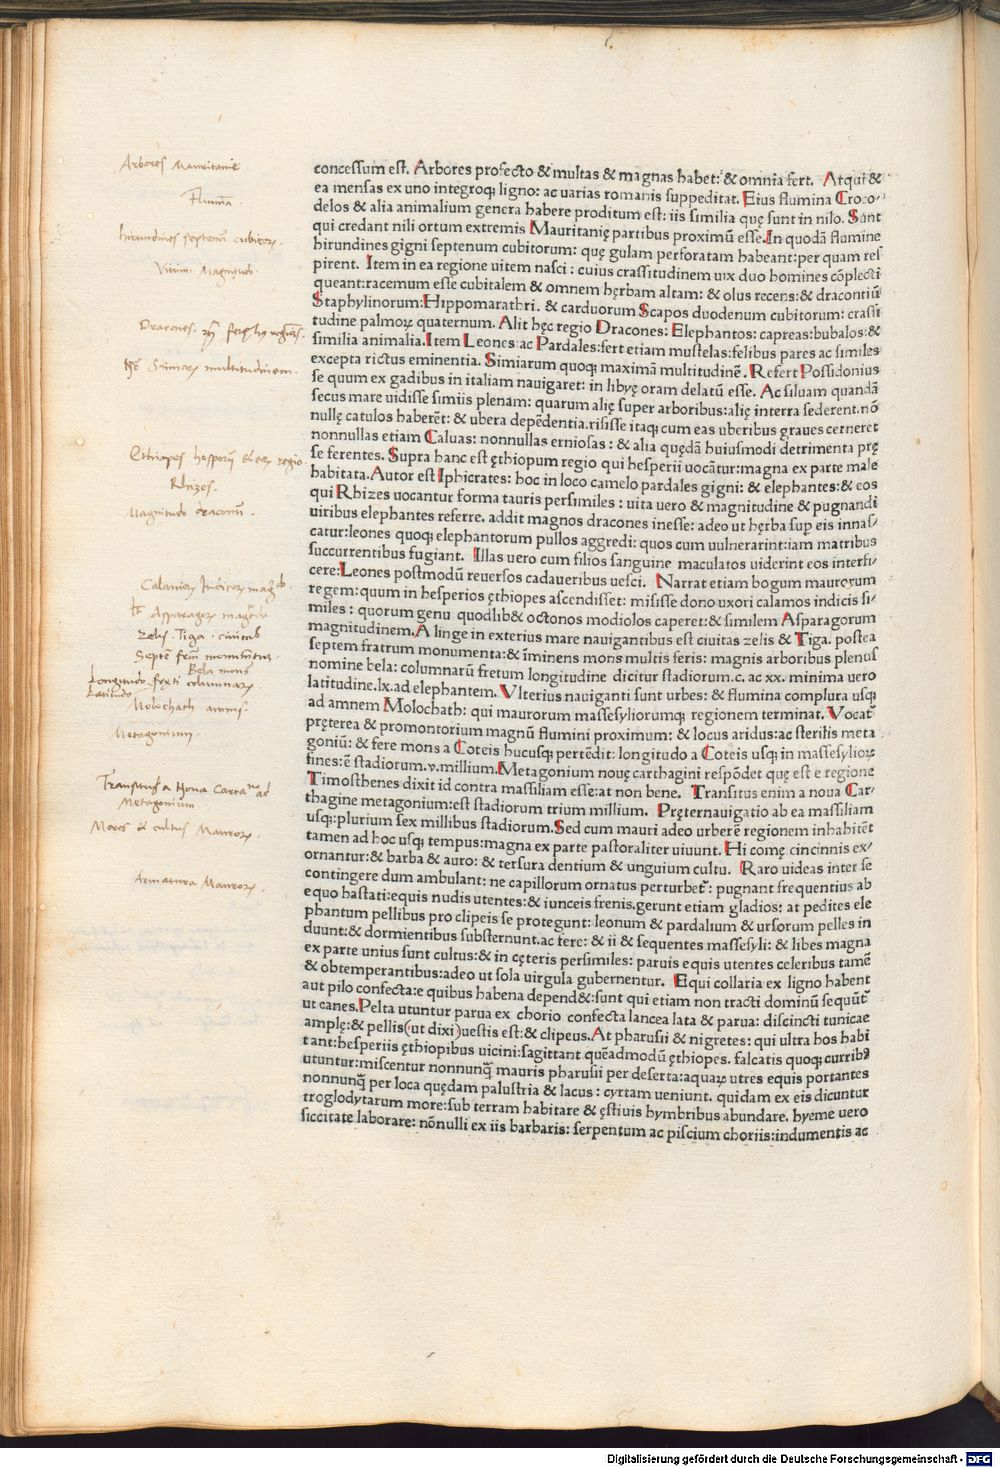 Arbores Mauritanie
Flumina.
hirundines septenum cubitorum.
Vitium Magnitudo.
Dracones.
multitudinem.
Ethiopes hesperii
Rhizes.
Magnitudo draconum.
Zelis. Tiga. civitas
Bela mons
Longitudo freti columnarum
Latitudo
Molochath amnis.
Metagonium.
Transitus a Nova Carta
Metagonium
Mores & cultus Maurorum.
Armatura Maurorum.
concessum est. Arbores profecto & multas & magnas habet: & omnia fert. Atqui &
ea mensas ex uno integroq; ligno: ac uarias romanis suppeditat. Eius flumina Croco⸗
delos & alia animalium genera habere proditum est: iis similia quę sunt in nilo. Sunt
qui credant nili ortum extremis Mauritanię partibus proximū esse. In quodā flumine
hirundines gigni septenum cubitorum: quę gulam perforatam habeant: per quam res⸗
pirent. Item in ea regione uitem nasci: cuius crassitudinem uix duo homines cōplecti
queant: racemum esse cubitalem & omnem hęrbam altam: & olus recens: & dracontiū
Staphylinorum: Hippomarathri. & carduorum Scapos duodenum cubitorum: crassi
tudine palmoꝝ quaternum. Alit hęc regio Dracones: Elephantos: capreas: bubalos: &
similia animalia. Item Leones ac Pardales: fert etiam mustelas: felibus pares ac similes
excepta rictus eminentia. Simiarum quoq; maximā multitudinē. Refert Possidonius
se quum ex gadibus in italiam nauigaret: in libyę oram delatū esse. Ac siluam quandā
secus mare uidisse simiis plenam: quarum alię super arboribus: alię in terra sederent. nō
nullę catulos haberēt: & ubera depēdentia. risisse itaq; cum eas uberibus graues cerneret
nonnullas etiam Caluas: nonnullas erniosas: & alia quędā huiusmodi detrimenta prę
se ferentes. Supra hanc est ęthiopum regio qui hesperii uocātur: magna ex parte male
habitata. Autor est Iphicrates: hoc in loco camelo pardales gigni: & elephantes: & eos
qui Rhizes uocantur forma tauris persimiles: uita uero & magnitudine & pugnandi
uiribus elephantes referre. addit magnos dracones inesse: adeo ut hęrba sup eis innas⸗
catur: leones quoq; elephantorum pullos aggredi: quos cum uulnerarint: iam matribus
succurrentibus fugiant. Illas uero cum filios sanguine maculatos uiderint eos interfi⸗
cere: Leones postmodū reuersos cadaueribus uesci. Narrat etiam bogum maurorum
regem: quum in hesperios ęthiopes ascendisset: misisse dono uxori calamos indicis si⸗
miles: quorum genu quodlib& octonos modiolos caperet: & similem Asparagorum
magnitudinem. A linge in exterius mare nauigantibus est ciuitas zelis & Tiga. postea
septem fratrum monumenta: & īminens mons multis feris: magnis arboribus plenus
nomine bela: columnarū fretum longitudine dicitur stadiorum. c. ac xx. minima uero
latitudine. lx. ad elephantem. Vlterius nauiganti sunt urbes: & flumina complura usq;
ad amnem Molochath: qui maurorum massesyliorumq; regionem terminat. Vocať
pręterea & promontorium magnū flumini proximum: & locus aridus: ac sterilis meta
goniū: & fere mons a Coteis hucusq; pertēdit: longitudo a Coteis usq; in massesylioꝝ
fines: ē stadiorum. v. millium. Metagonium nouę carthagini respōdet quę est e regione
Timosthenes dixit id contra massiliam esse: at non bene. Transitus enim a noua Car⸗
thagine metagonium: est stadiorum trium millium. Pręternauigatio ab ea massiliam
usq; plurium sex millibus stadiorum. Sed cum mauri adeo urberē regionem inhabitēt
tamen ad hoc usq; tempus: magna ex parte pastoraliter uiuunt. Hi comę cincinnis ex⸗
ornantur: & barba & auro: & tersura dentium & unguium cultu. Raro uideas inter se
contingere dum ambulant: ne capillorum ornatus perturbeť: pugnant frequentius ab
equo hastati: equis nudis utentes: & iunceis frenis. gerunt etiam gladios: at pedites ele
phantum pellibus pro clipeis se protegunt: leonum & pardalium & ursorum pelles in
duunt: & dormientibus substernunt. ac fere: & ii & sequentes massesyli: & libes magna
ex parte unius sunt cultus: & in cęteris persimiles: paruis equis utentes celeribus tamē
& obtemperantibus: adeo ut sola uirgula gubernentur. Equi collaria ex ligno habent
aut pilo confecta: e quibus habena depend&: sunt qui etiam non tracti dominū sequūť
ut canes. Pelta utuntur parua ex chorio confecta lancea lata & parua: discincti tunicae
amplę: & pellis (ut dixi) uestis est: & clipeus. At pharusii & nigretes: qui ultra hos habi
tant: hesperiis ęthiopibus uicini: sagittant quēadmodū ęthiopes. falcatis quoq; curribꝰ
utuntur: miscentur nonnunq̄ mauris pharusii per deserta: aquaꝝ utres equis portantes
nonnunq̄ per loca quędam palustria & lacus: cyrtam ueniunt. quidam ex eis dicuntur
troglodytarum more: sub terram habitare & ęstiuis hymbribus abundare. hyeme uero
siccitate laborare: nōnulli ex iis barbaris: serpentum ac piscium choriis: indumentis ac
Digitalisierung gefördert durch die Deutsche Forschungsgemeinschaft - DFG